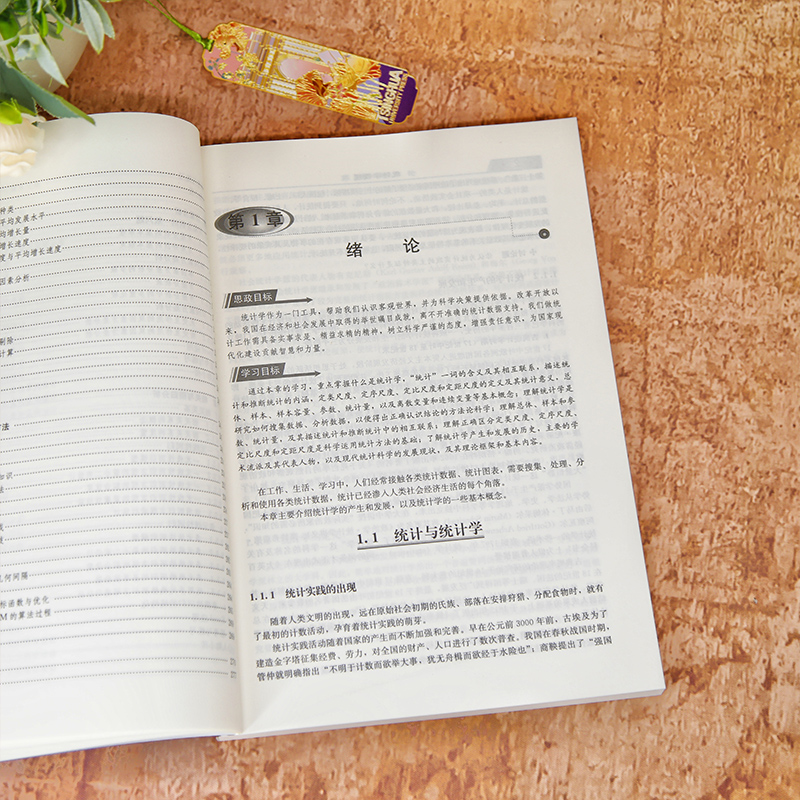 TSINGHUA
种类
平均发展水平
均增长量
增长速度
度与平均增长速度
因素分析
剔除
计算
几何间隔
标函数与优化
M的算法过程
第1章
绪 论
思政目标
统计学作为一门工具，帮助我们认识客观世界，并为科学决策提供依据。改革开放以
来，我国在经济和社会发展中取得的举世瞩目成就，离不开准确的统计数据支持。我们做统
计工作需具备实事求是、精益求精的精神，树立科学严谨的态度，增强责任意识，为国家现
代化建设贡献智慧和力量。
学习目标
通过本章的学习，重点掌握什么是统计学，“统计”一词的含义及其相互联系，描述统
计和推断统计的内涵，定类尺度、定序尺度、定比尺度和定距尺度的定义及其统计意义，总
体、样本、样本容量、参数、统计量，以及离散变量和连续变量等基本概念；理解统计学是
研究如何搜集数据、分析数据，以便得出正确认识结论的方法论科学；理解总体、样本和参
数、统计量，及其描述统计和推断统计中的相互联系；理解正确区分定类尺度、定序尺度、
定比尺度和定距尺度是科学运用统计方法的基础；了解统计学产生和发展的历史，主要的学
术流派及其代表人物，以及现代统计科学的发展现状，及其理论框架和基本内容。
在工作、生活、学习中，人们经常接触各类统计数据、统计图表，需要搜集、处理、分
析和使用各类统计数据，统计已经渗入人类社会经济生活的每个角落。
本章主要介绍统计学的产生和发展，以及统计学的一些基本概念。
1.1 统计与统计学
1.1.1 统计实践的出现
随着人类文明的出现，远在原始社会初期的氏族、部落在安排狩猎、分配食物时，就有
了最初的计数活动，孕育着统计实践的萌芽。
统计实践活动随着国家的产生而不断加强和完善。早在公元前3000年前，古埃及为了
建造金字塔征集经费、劳力，对全国的财产、人口进行了数次普查。我国在春秋战国时期，
管仲就明确指出“不明于计数而欲举大事，犹无舟楫而欲经于水险也”；商鞅提出了“强国